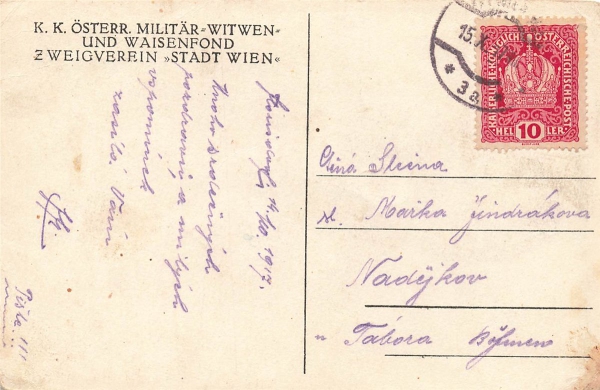 K. K. ÖSTERR. MILITÄR-WITWEN-
UND WAISENFOND
ZWEIGVEREIN »STADT WIEN«
14/XI. 1917.
Mnoho srdečných
pozdravů a milých
vzpomínek
zasílá Vám
Pište...!!!
15.X
* 3a
KAISERLICHE KÖNIGLICHE ÖSTERREICHISCHE POST
HELLER
10
Ctěná Slečna
sl. Mařka Jindrákova
Nadějkov
u Tábora Böhmen